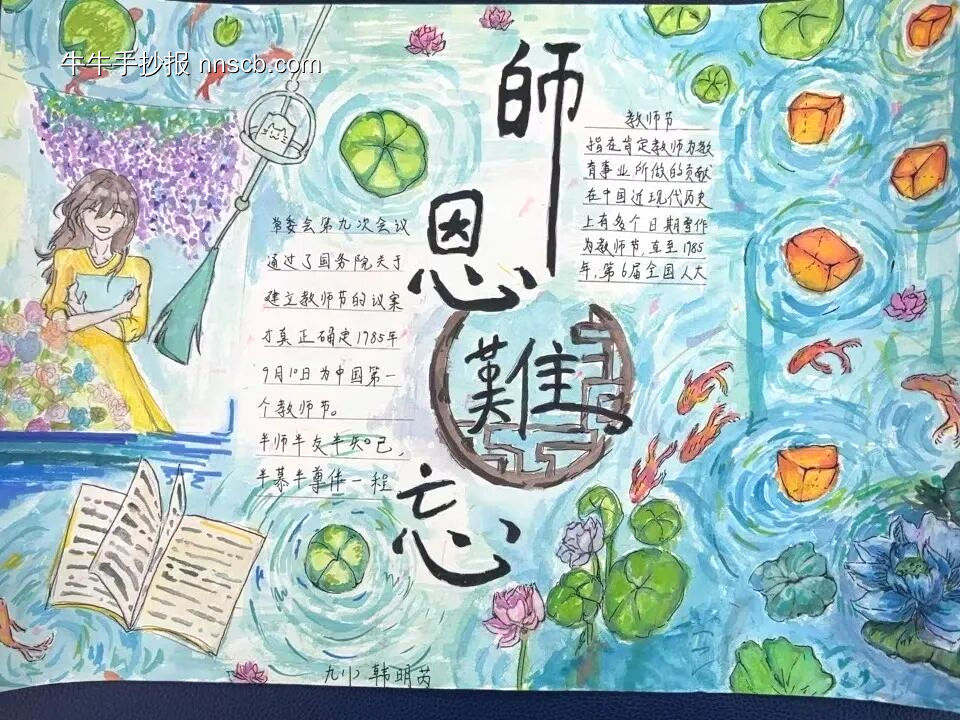 牛牛手抄报 nnscb.com
師恩難忘
教师节
指在肯定教师为教
育事业所做的贡献
在中国近现代历史
上有多个日期曾作
为教师节,直至1985
年,第6届全国人大
常委会第九次会议
通过了国务院关于
建立教师节的议案
才真正确定1985年
9月10日为中国第一
个教师节。
半师半友半知己,
半慕半尊伴一程
九(1) 韩明芮